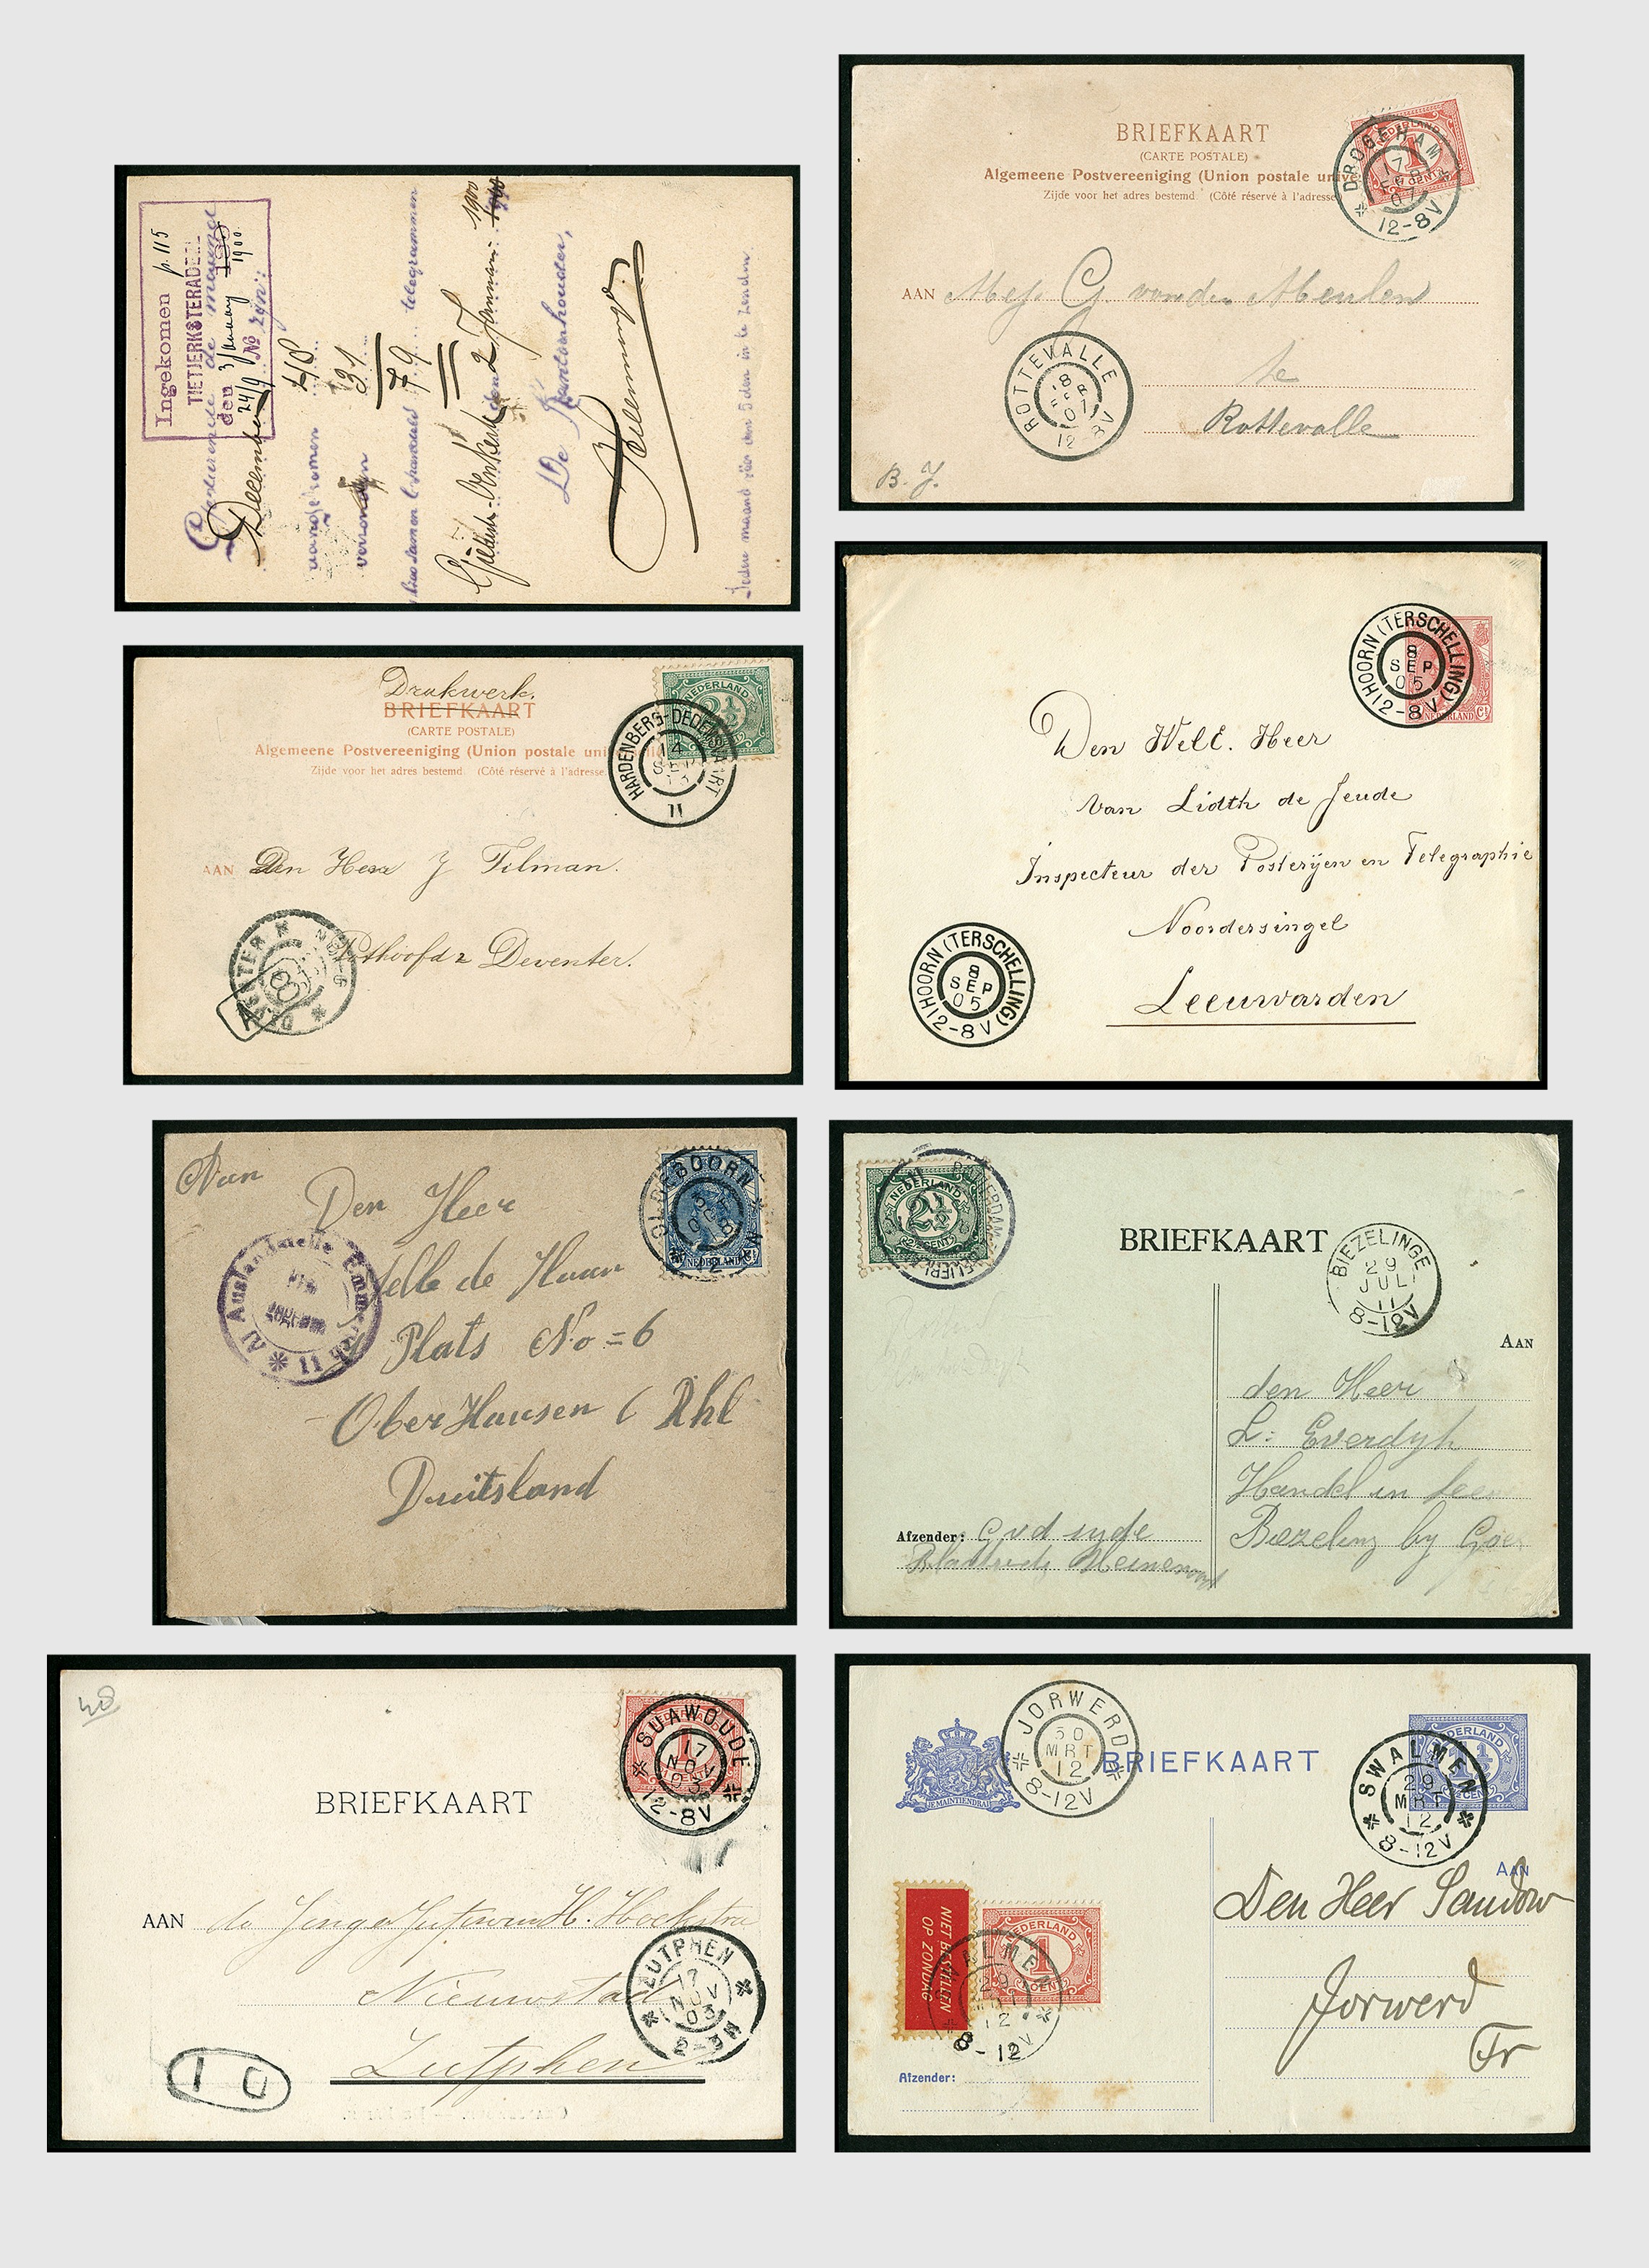 Ingekomen p. 115
TIETJERKSTERADEEL
den 3 January 1900
No 24/9
Gedurende de maand
December zijn:
aangekomen 48
verzonden 31
samen 79 telegrammen
den 2 January 1900
De Kantoorhouder,
Iedere maand vóór den 5den in te zenden
BRIEFKAART
(CARTE POSTALE)
Algemeene Postvereeniging (Union postale unive
Zijde voor het adres bestemd (Côté réservé à l'adresse
NEDERLAND
1
CENT
DROGEHAM
17
FEB
07
12-8V
AAN Mej. G. van der Meulen
te
Rottevalle
ROTTEVALLE
18
FEB
07
12-8V
B. J.
Drukwerk.
BRIEFKAART
(CARTE POSTALE)
Algemeene Postvereeniging (Union postale uni
Zijde voor het adres bestemd. (Côté réservé à l'adresse.
NEDERLAND
2½
HARDENBERG-DEDEMSVAART
14
SEP
II
AAN Den Heer J Tilman.
Pothoofd 2 Deventer.
DEVENTER
HOORN (TERSCHELLING)
8
SEP
05
12-8V
NEDERLAND Ct
Den WelE. Heer
van Lidth de Jeude
Inspecteur der Posterijen en Telegraphie
Noordersingel
Leeuwarden
HOORN (TERSCHELLING)
8
SEP
05
12-8V
Aan
Den Heer
Jelle de Haan
Plats No = 6
OberHausen ( Rhl
Duitsland
OLDEBOORN
NEDERLAND Ct
Auslandstelle Emmerich
NEDERLAND
2½
CENT
BRIEFKAART
BIEZELINGE
29
JUL
11
8-12V
AAN
den Heer
L: Everdyk
Handel in
Biezeling by Goes
Afzender: G v d
Blaaksedijk Heinenoord
48
BRIEFKAART
SUAWOUDE
17
NOV
03
12-8V
AAN de Jonge Juffrouw H. Hoekstra
Nieuwstad
Zutphen
ZUTPHEN
17
NOV
03
2-3N
10
JE MAINTIENDRAI
JORWERD
30
MRT
12
8-12V
BRIEFKAART
NEDERLAND
1½
CENT
SWALMEN
29
MRT
12
8-12V
AAN
Den Heer Sandow
Jorwerd
Fr
NIET BESTELLEN
OP ZONDAG
NEDERLAND
1
CENT
SWALMEN
29
12
8-12V
Afzender: